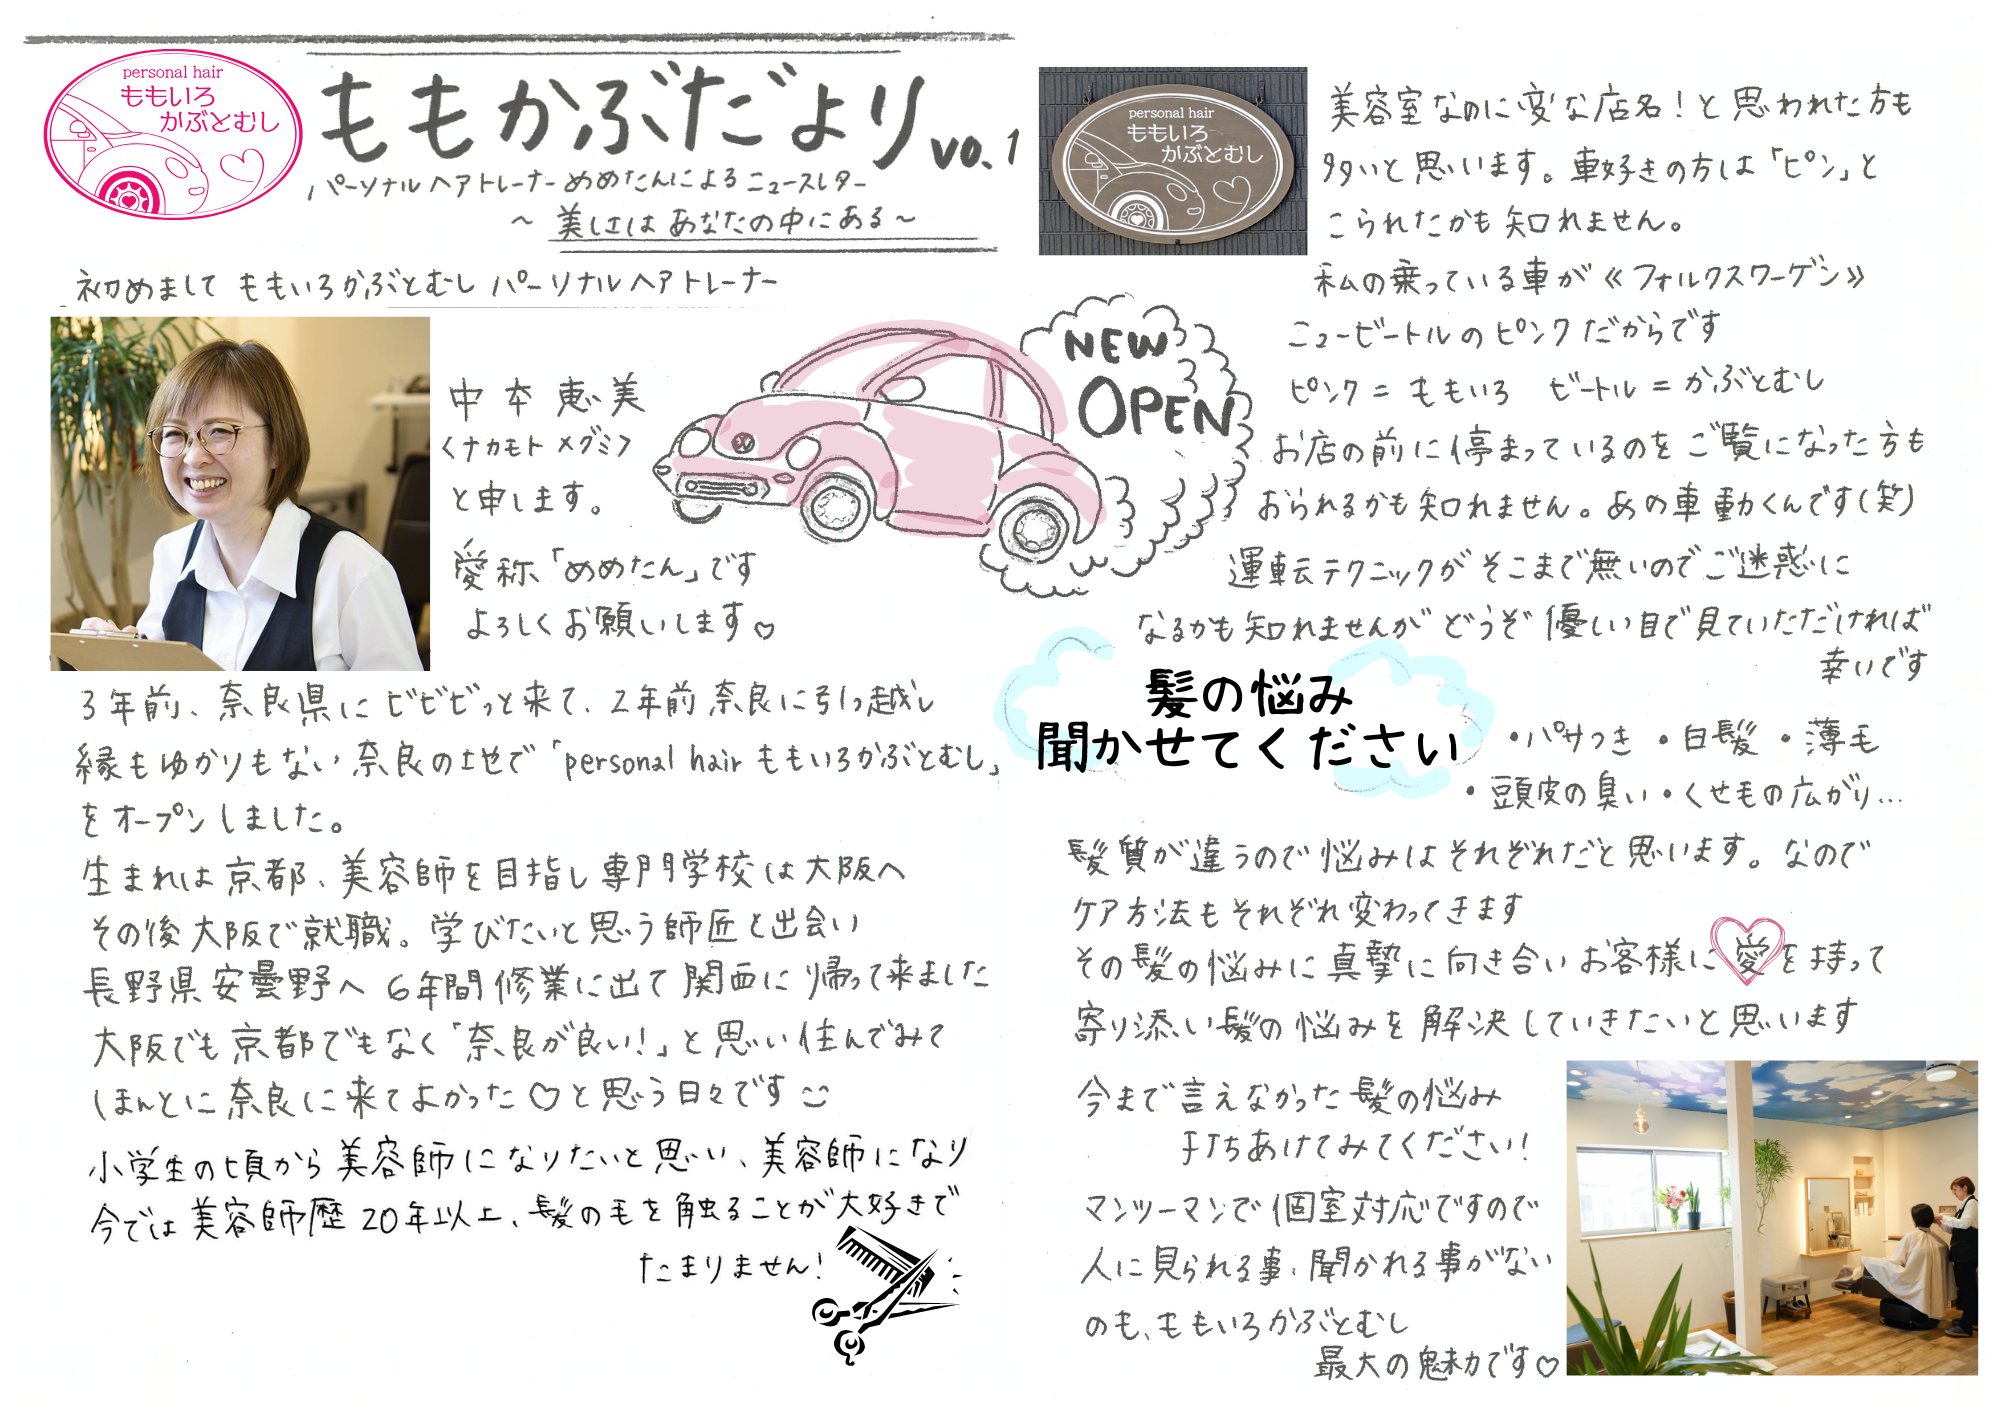 personal hair
ももいろ
かぶとむし
ももかぶだより vo.1
パーソナルヘアトレーナーめめたんによるニュースレター
～美しさはあなたの中にある～
初めまして ももいろかぶとむし パーソナルヘアトレーナー
中本恵美
<ナカモトメグミ>
と申します。
愛称「めめたん」です
よろしくお願いします♡
3年前、奈良県にビビビっと来て、2年前奈良に引っ越し
縁もゆかりもない奈良の土地で「personal hair ももいろかぶとむし」
をオープンしました。
生まれは京都、美容師を目指し専門学校は大阪へ
その後大阪で就職。学びたいと思う師匠と出会い
長野県安曇野へ6年間修業に出て関西に帰って来ました
大阪でも京都でもなく「奈良が良い!」と思い住んでみて
ほんとに奈良に来てよかった♡と思う日々です
小学生の頃から美容師になりたいと思い、美容師になり
今では美容師歴20年以上、髪の毛を触ることが大好きで
たまりません!
NEW
OPEN
personal hair
ももいろ
かぶとむし
美容室なのに変な店名!と思われた方も
多いと思います。車好きの方は「ピン」と
こられたかも知れません。
私の乗っている車が《フォルクスワーゲン》
ニュービートルのピンクだからです
ピンク=ももいろ ビートル=かぶとむし
お店の前に停まっているのをご覧になった方も
おられるかも知れません。あの車動くんです(笑)
運転テクニックがそこまで無いのでご迷惑に
なるかも知れませんがどうぞ優しい目で見ていただければ
幸いです
髪の悩み
聞かせてください
・パサつき ・白髪 ・薄毛
・頭皮の臭い・くせ毛の広がり…
髪質が違うので悩みはそれぞれだと思います。なので
ケア方法もそれぞれ変わってきます
その髪の悩みに真摯に向き合いお客様に愛を持って
寄り添い髪の悩みを解決していきたいと思います
今まで言えなかった髪の悩み
打ちあけてみてください!
マンツーマンで個室対応ですので
人に見られる事、聞かれる事がない
のも、ももいろかぶとむし
最大の魅力です♡